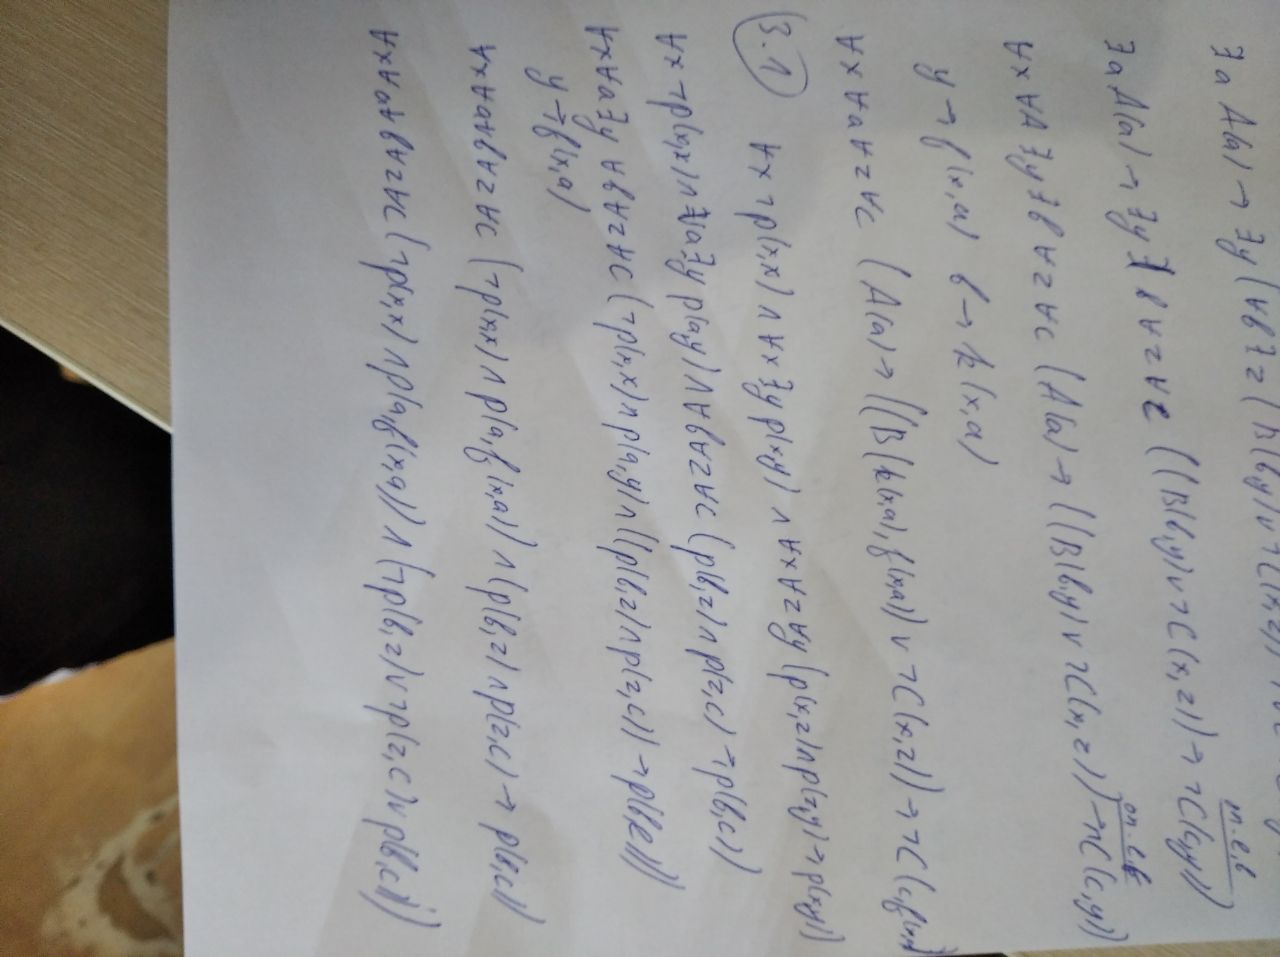 ∃a A(a) → ∃y (∀b∃z (B(b,y) ∨ ¬C(x,z))
∃a A(a) → ∃y ∃b ∀z∀c ((B(b,y) ∨ ¬C(x,z)) → ¬C(c,y))
∀x∀a ∃y∃b∀z∀c (A(a) → ((B(b,y) ∨ ¬C(x,z)) → ¬C(c,y))
y → f(x,a) b → k(x,a)
∀x∀a∀z∀c (A(a) → ((B(k(x,a), f(x,a)) ∨ ¬C(x,z)) → ¬C(c,f(x,a))
3.1 ∀x ¬p(x,x) ∧ ∀x∃y p(x,y) ∧ ∀x∀z∀y (p(x,z) ∧ p(z,y) → p(x,y))
∀x ¬p(x,x) ∧ ∀a∃y p(a,y) ∧ ∀b∀z∀c (p(b,z) ∧ p(z,c) → p(b,c))
∀x∀a∃y ∀b∀z∀c (¬p(x,x) ∧ p(a,y) ∧ ((p(b,z) ∧ p(z,c)) → p(b,c)))
y → f(x,a)
∀x∀a∀b∀z∀c (¬p(x,x) ∧ p(a,f(x,a)) ∧ (p(b,z) ∧ p(z,c) → p(b,c))
∀x∀a∀b∀z∀c (¬p(x,x) ∧ p(a,f(x,a)) ∧ (¬p(b,z) ∨ ¬p(z,c) ∨ p(b,c)))